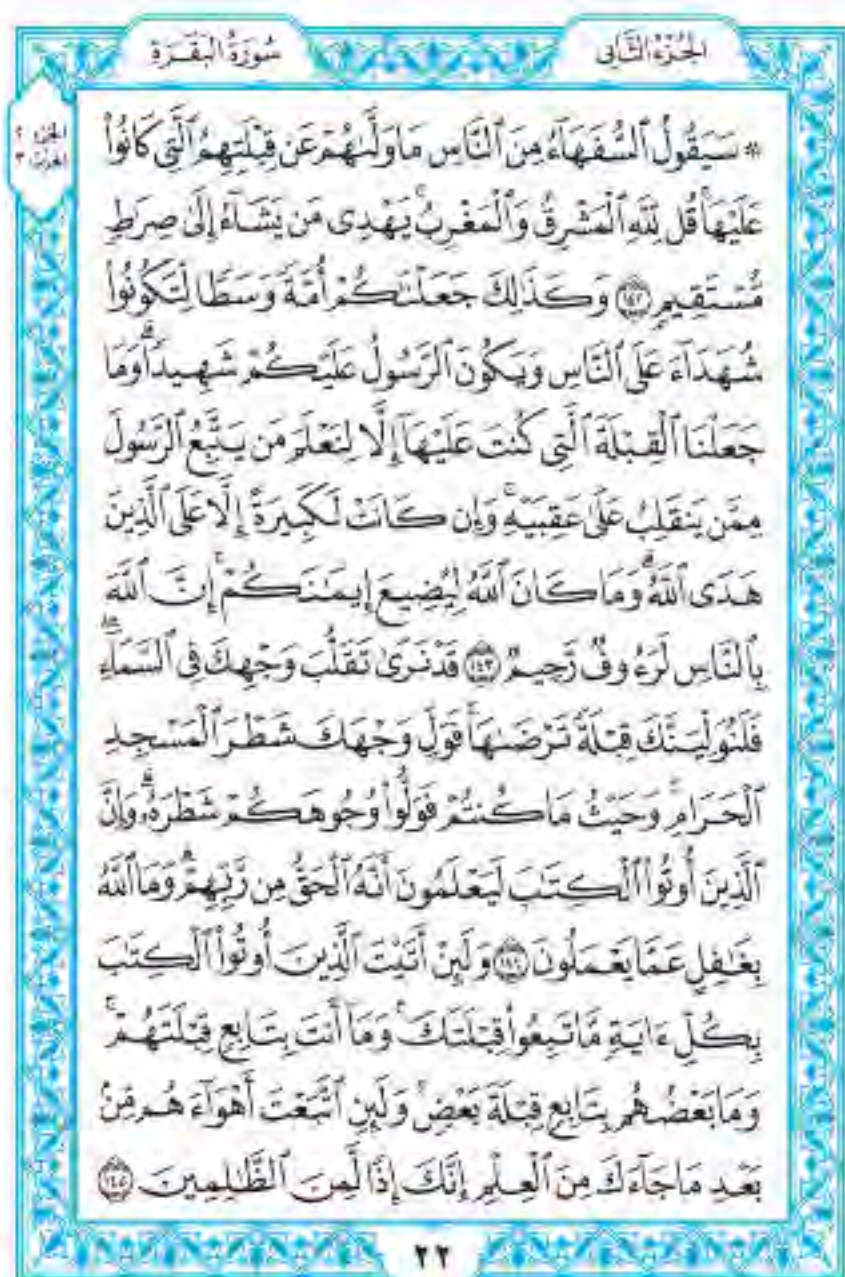 الجُزْءُ الثَّانِى
سُورَةُ البَقَرَةِ
۞ سَيَقُولُ ٱلسُّفَهَآءُ مِنَ ٱلنَّاسِ مَا وَلَّىٰهُمْ عَن قِبْلَتِهِمُ ٱلَّتِى كَانُوا۟
عَلَيْهَا ۚ قُل لِّلَّهِ ٱلْمَشْرِقُ وَٱلْمَغْرِبُ ۚ يَهْدِى مَن يَشَآءُ إِلَىٰ صِرَٰطٍ
مُّسْتَقِيمٍ ١٤٢ وَكَذَٰلِكَ جَعَلْنَٰكُمْ أُمَّةً وَسَطًا لِّتَكُونُوا۟
شُهَدَآءَ عَلَى ٱلنَّاسِ وَيَكُونَ ٱلرَّسُولُ عَلَيْكُمْ شَهِيدًا ۗ وَمَا
جَعَلْنَا ٱلْقِبْلَةَ ٱلَّتِى كُنتَ عَلَيْهَآ إِلَّا لِنَعْلَمَ مَن يَتَّبِعُ ٱلرَّسُولَ
مِمَّن يَنقَلِبُ عَلَىٰ عَقِبَيْهِ ۚ وَإِن كَانَتْ لَكَبِيرَةً إِلَّا عَلَى ٱلَّذِينَ
هَدَى ٱللَّهُ ۗ وَمَا كَانَ ٱللَّهُ لِيُضِيعَ إِيمَٰنَكُمْ ۚ إِنَّ ٱللَّهَ
بِٱلنَّاسِ لَرَءُوفٌ رَّحِيمٌ ١٤٣ قَدْ نَرَىٰ تَقَلُّبَ وَجْهِكَ فِى ٱلسَّمَآءِ ۖ
فَلَنُوَلِّيَنَّكَ قِبْلَةً تَرْضَىٰهَا ۚ فَوَلِّ وَجْهَكَ شَطْرَ ٱلْمَسْجِدِ
ٱلْحَرَامِ ۚ وَحَيْثُ مَا كُنتُمْ فَوَلُّوا۟ وُجُوهَكُمْ شَطْرَهُۥ ۗ وَإِنَّ
ٱلَّذِينَ أُوتُوا۟ ٱلْكِتَٰبَ لَيَعْلَمُونَ أَنَّهُ ٱلْحَقُّ مِن رَّبِّهِمْ ۗ وَمَا ٱللَّهُ
بِغَٰفِلٍ عَمَّا يَعْمَلُونَ ١٤٤ وَلَئِنْ أَتَيْتَ ٱلَّذِينَ أُوتُوا۟ ٱلْكِتَٰبَ
بِكُلِّ ءَايَةٍ مَّا تَبِعُوا۟ قِبْلَتَكَ ۚ وَمَآ أَنتَ بِتَابِعٍ قِبْلَتَهُمْ ۚ
وَمَا بَعْضُهُم بِتَابِعٍ قِبْلَةَ بَعْضٍ ۚ وَلَئِنِ ٱتَّبَعْتَ أَهْوَآءَهُم مِّنۢ
بَعْدِ مَا جَآءَكَ مِنَ ٱلْعِلْمِ ۙ إِنَّكَ إِذًا لَّمِنَ ٱلظَّٰلِمِينَ ١٤٥
٢٢